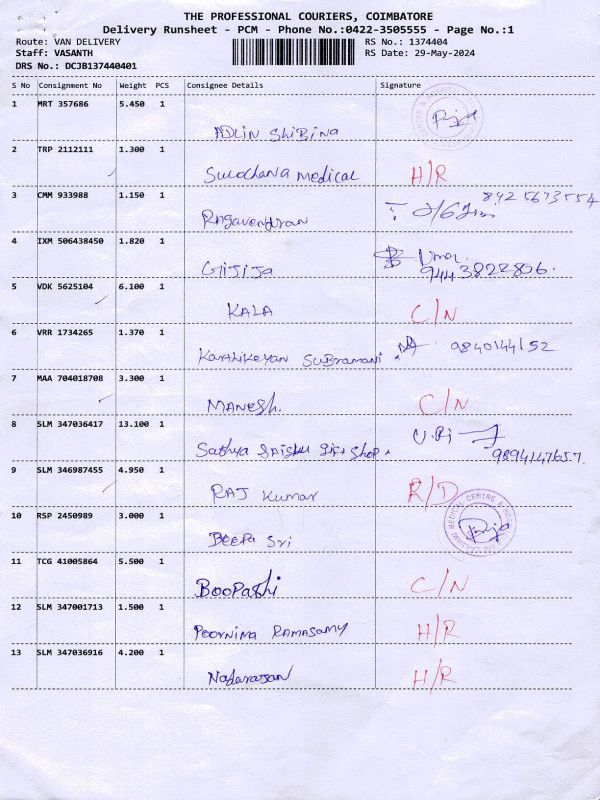 THE PROFESSIONAL COURIERS, COIMBATORE
Delivery Runsheet - PCM - Phone No.:0422-3505555 - Page No.:1
Route: VAN DELIVERY RS No.: 1374404
Staff: VASANTH RS Date: 29-May-2024
DRS No.: DCJB137440401
S No Consignment No Weight PCS Consignee Details Signature
1 MRT 357686 5.450 1
ADLIN SHIBINA
2 TRP 2112111 1.300 1
Sulochana medical H/R
3 CMM 933988 1.150 1 8925673554
Ragavendran
4 IXM 506438450 1.820 1
Girija 9443822856.
5 VDK 5625104 6.100 1
KALA C/N
6 VRR 1734265 1.370 1 9840144152
Karthikeyan SUBramani
7 MAA 704018708 3.300 1
MANESH. C/N
8 SLM 347036417 13.100 1
Sathya Gift Shop 9894147657.
9 SLM 346987455 4.950 1
RAJ Kumar R/D
10 RSP 2450989 3.000 1 MEDICAL CENTRE &
Deepa Sri
11 TCG 41005864 5.500 1
BOOPathi C/N
12 SLM 347001713 1.500 1
Poornima RAMASAMY H/R
13 SLM 347036916 4.200 1
Natarajan H/R